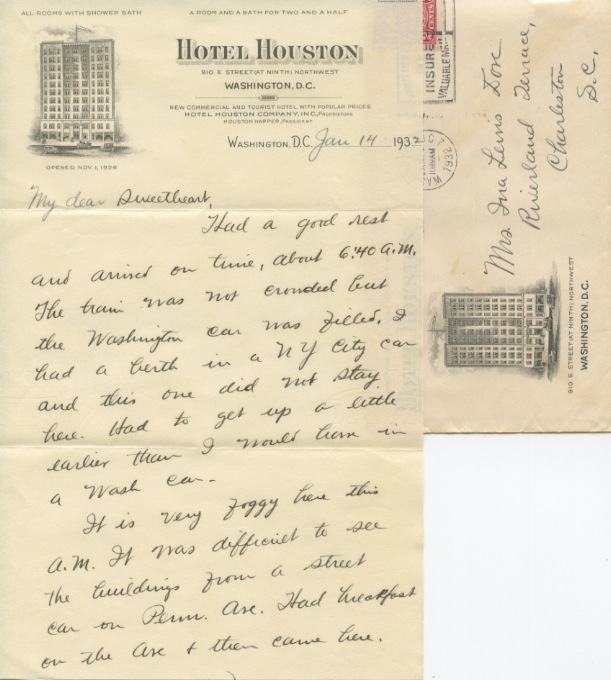 ALL ROOMS WITH SHOWER BATH
A ROOM AND A BATH FOR TWO AND A HALF
HOTEL HOUSTON
910 E. STREET (AT NINTH) NORTHWEST
WASHINGTON, D.C.
NEW COMMERCIAL AND TOURIST HOTEL WITH POPULAR PRICES
HOTEL HOUSTON COMPANY, INC., PROPRIETORS
HOUSTON HARPER, PRESIDENT
OPENED NOV. 1, 1926
WASHINGTON, D.C. Jan 14 1932
My dear Sweetheart,
Had a good rest
and arrived on time, about 6:40 A.M.
The train was not crowded but
the Washington car was filled. I
had a berth in a NY City car
and this one did not stay
here. Had to get up a little
earlier than I would have in
a Wash car -
It is very foggy here this
A.M. It was difficult to see
the buildings from a street
car on Penn. Ave. Had breakfast
on the Ave & then came here.
CENTS
INSURE
VALUABLE MAIL
1932
Mrs Ina Lewis Dove
Riverland Terrace,
Charleston
S.C.
910 E. STREET (AT NINTH) NORTHWEST
WASHINGTON, D.C.